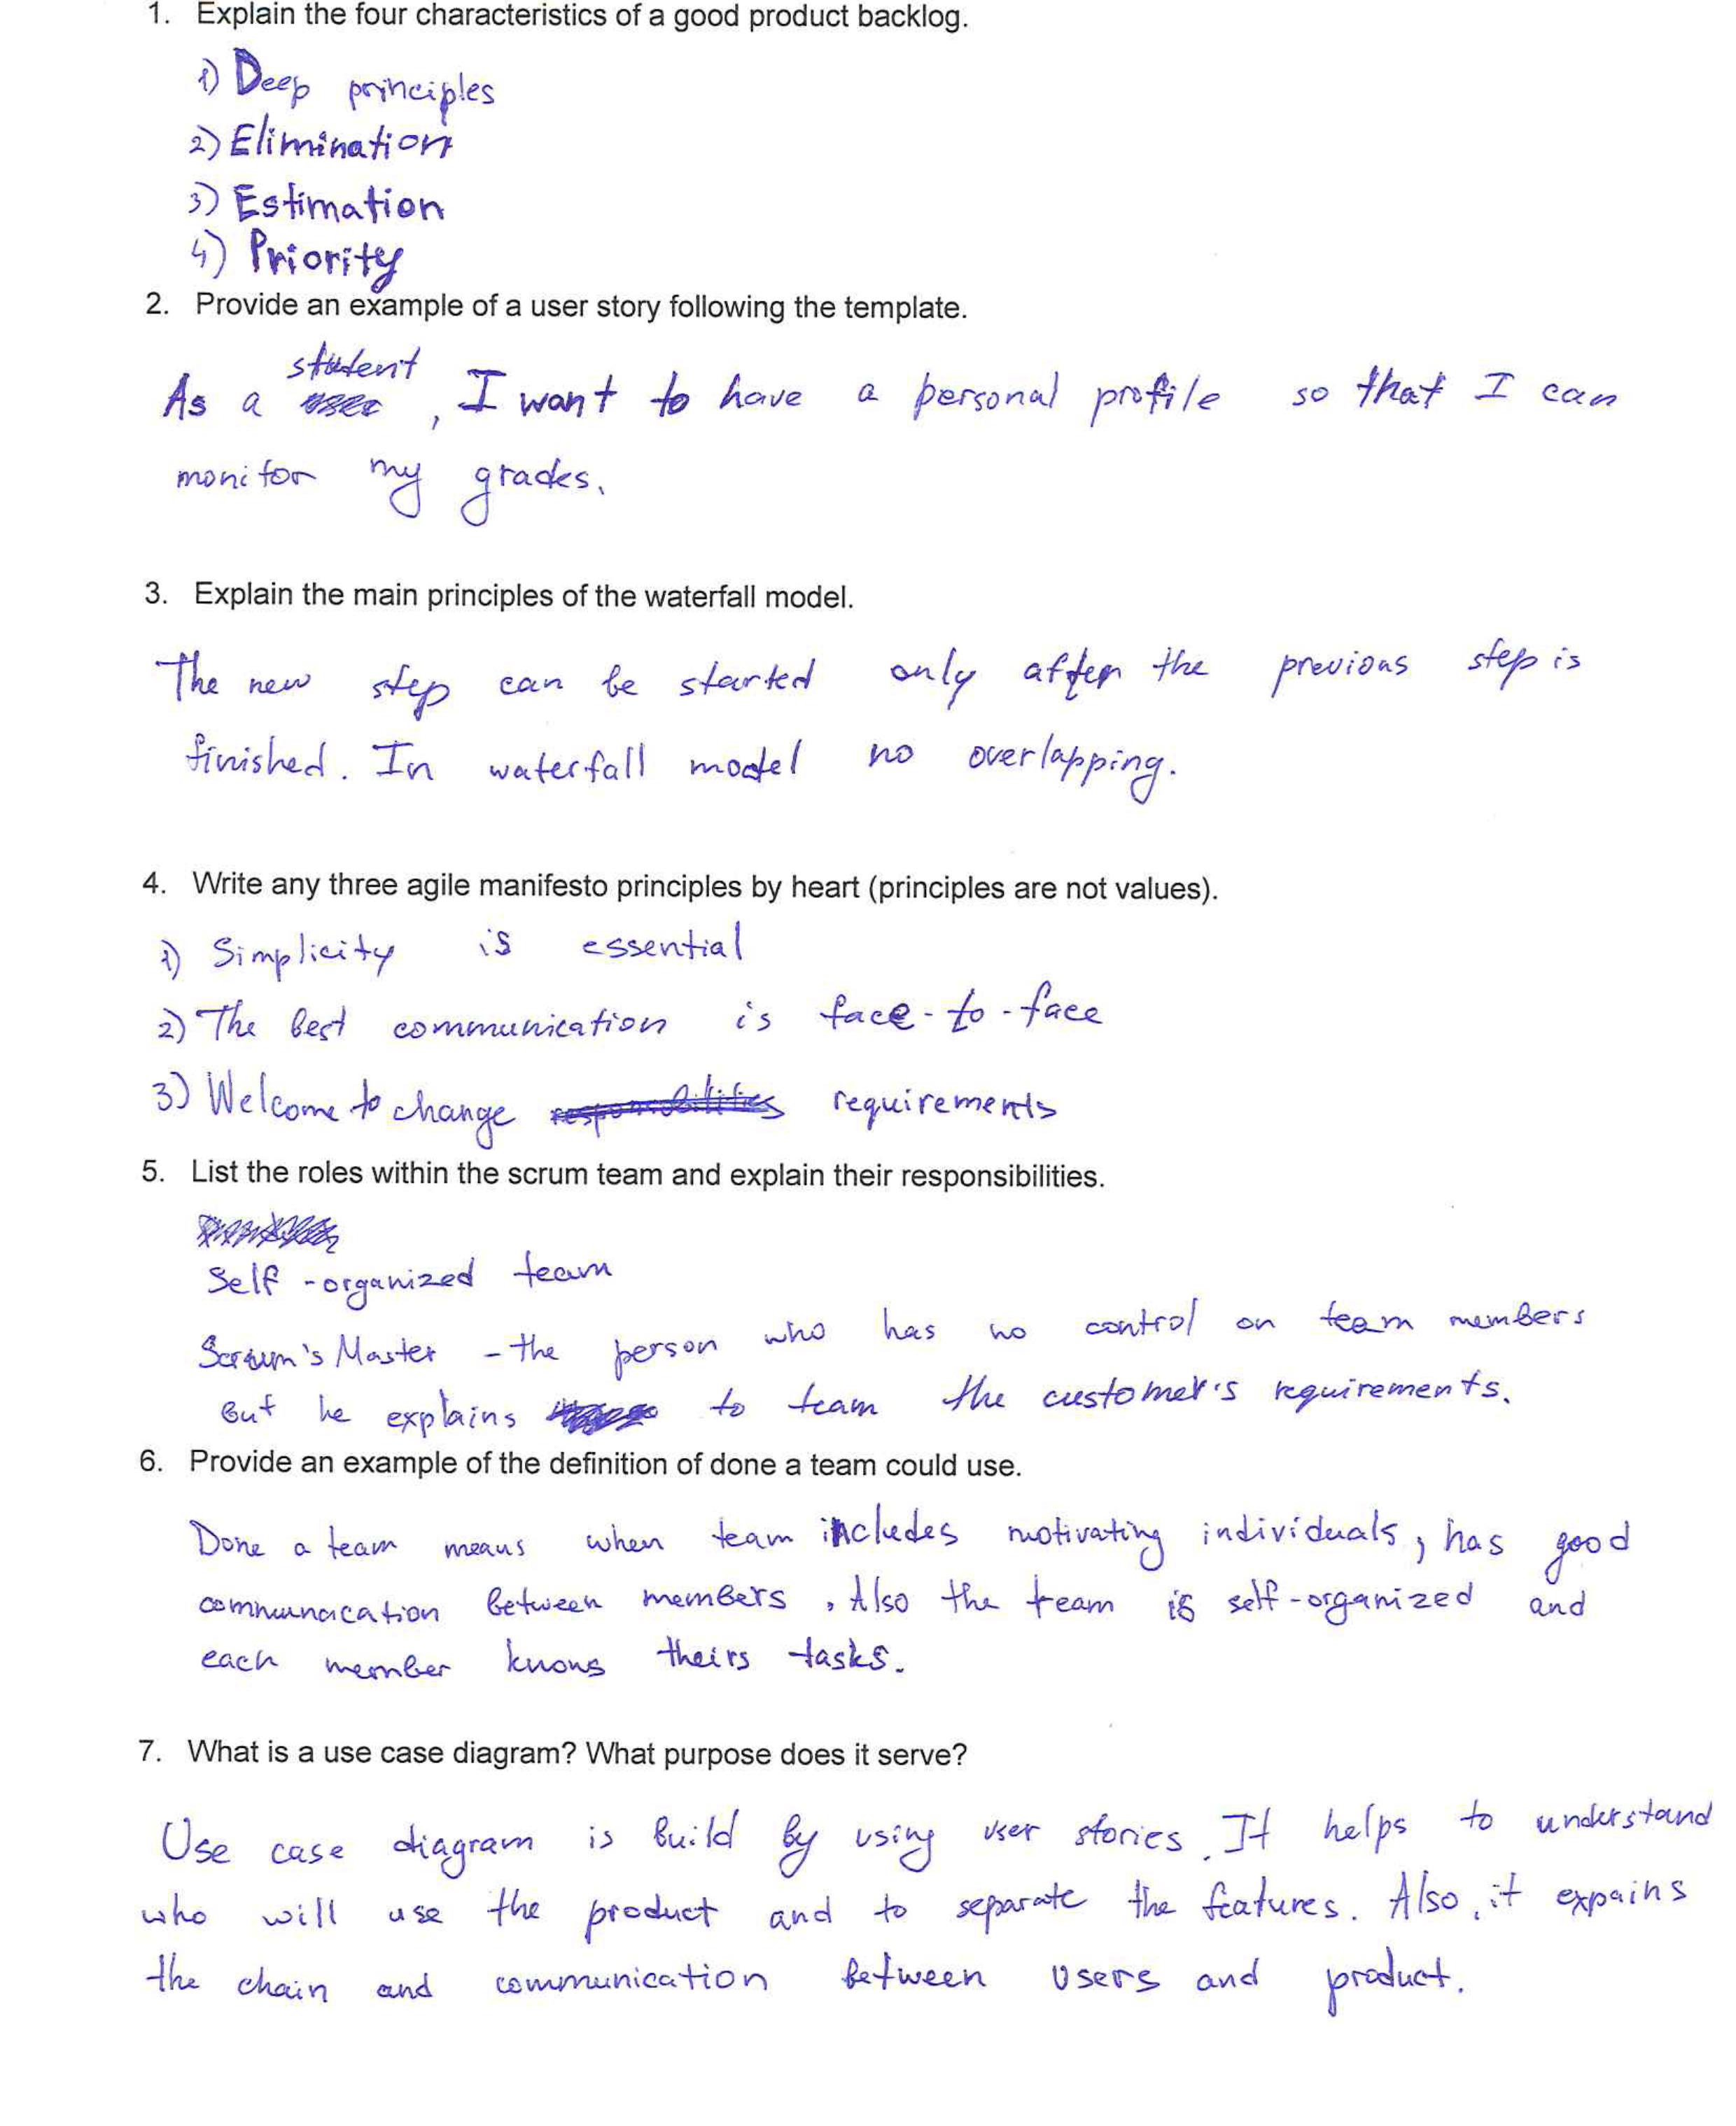 1. Explain the four characteristics of a good product backlog.
1) Deep principles
2) Elimination
3) Estimation
4) Priority
2. Provide an example of a user story following the template.
student
As a user, I want to have a personal profile so that I can
monitor my grades.
3. Explain the main principles of the waterfall model.
The new step can be started only after the previous step is
finished. In waterfall model no overlapping.
4. Write any three agile manifesto principles by heart (principles are not values).
1) Simplicity is essential
2) The best communication is face-to-face
3) Welcome to change responsibilities requirements
5. List the roles within the scrum team and explain their responsibilities.
Self-organized team
Scrum's Master - the person who has no control on team members
but he explains to team the customer's requirements.
6. Provide an example of the definition of done a team could use.
Done a team means when team includes motivating individuals, has good
communacation between members. Also the team is self-organized and
each member knows theirs tasks.
7. What is a use case diagram? What purpose does it serve?
Use case diagram is build by using user stories. It helps to understand
who will use the product and to separate the features. Also, it expains
the chain and communication between users and product.